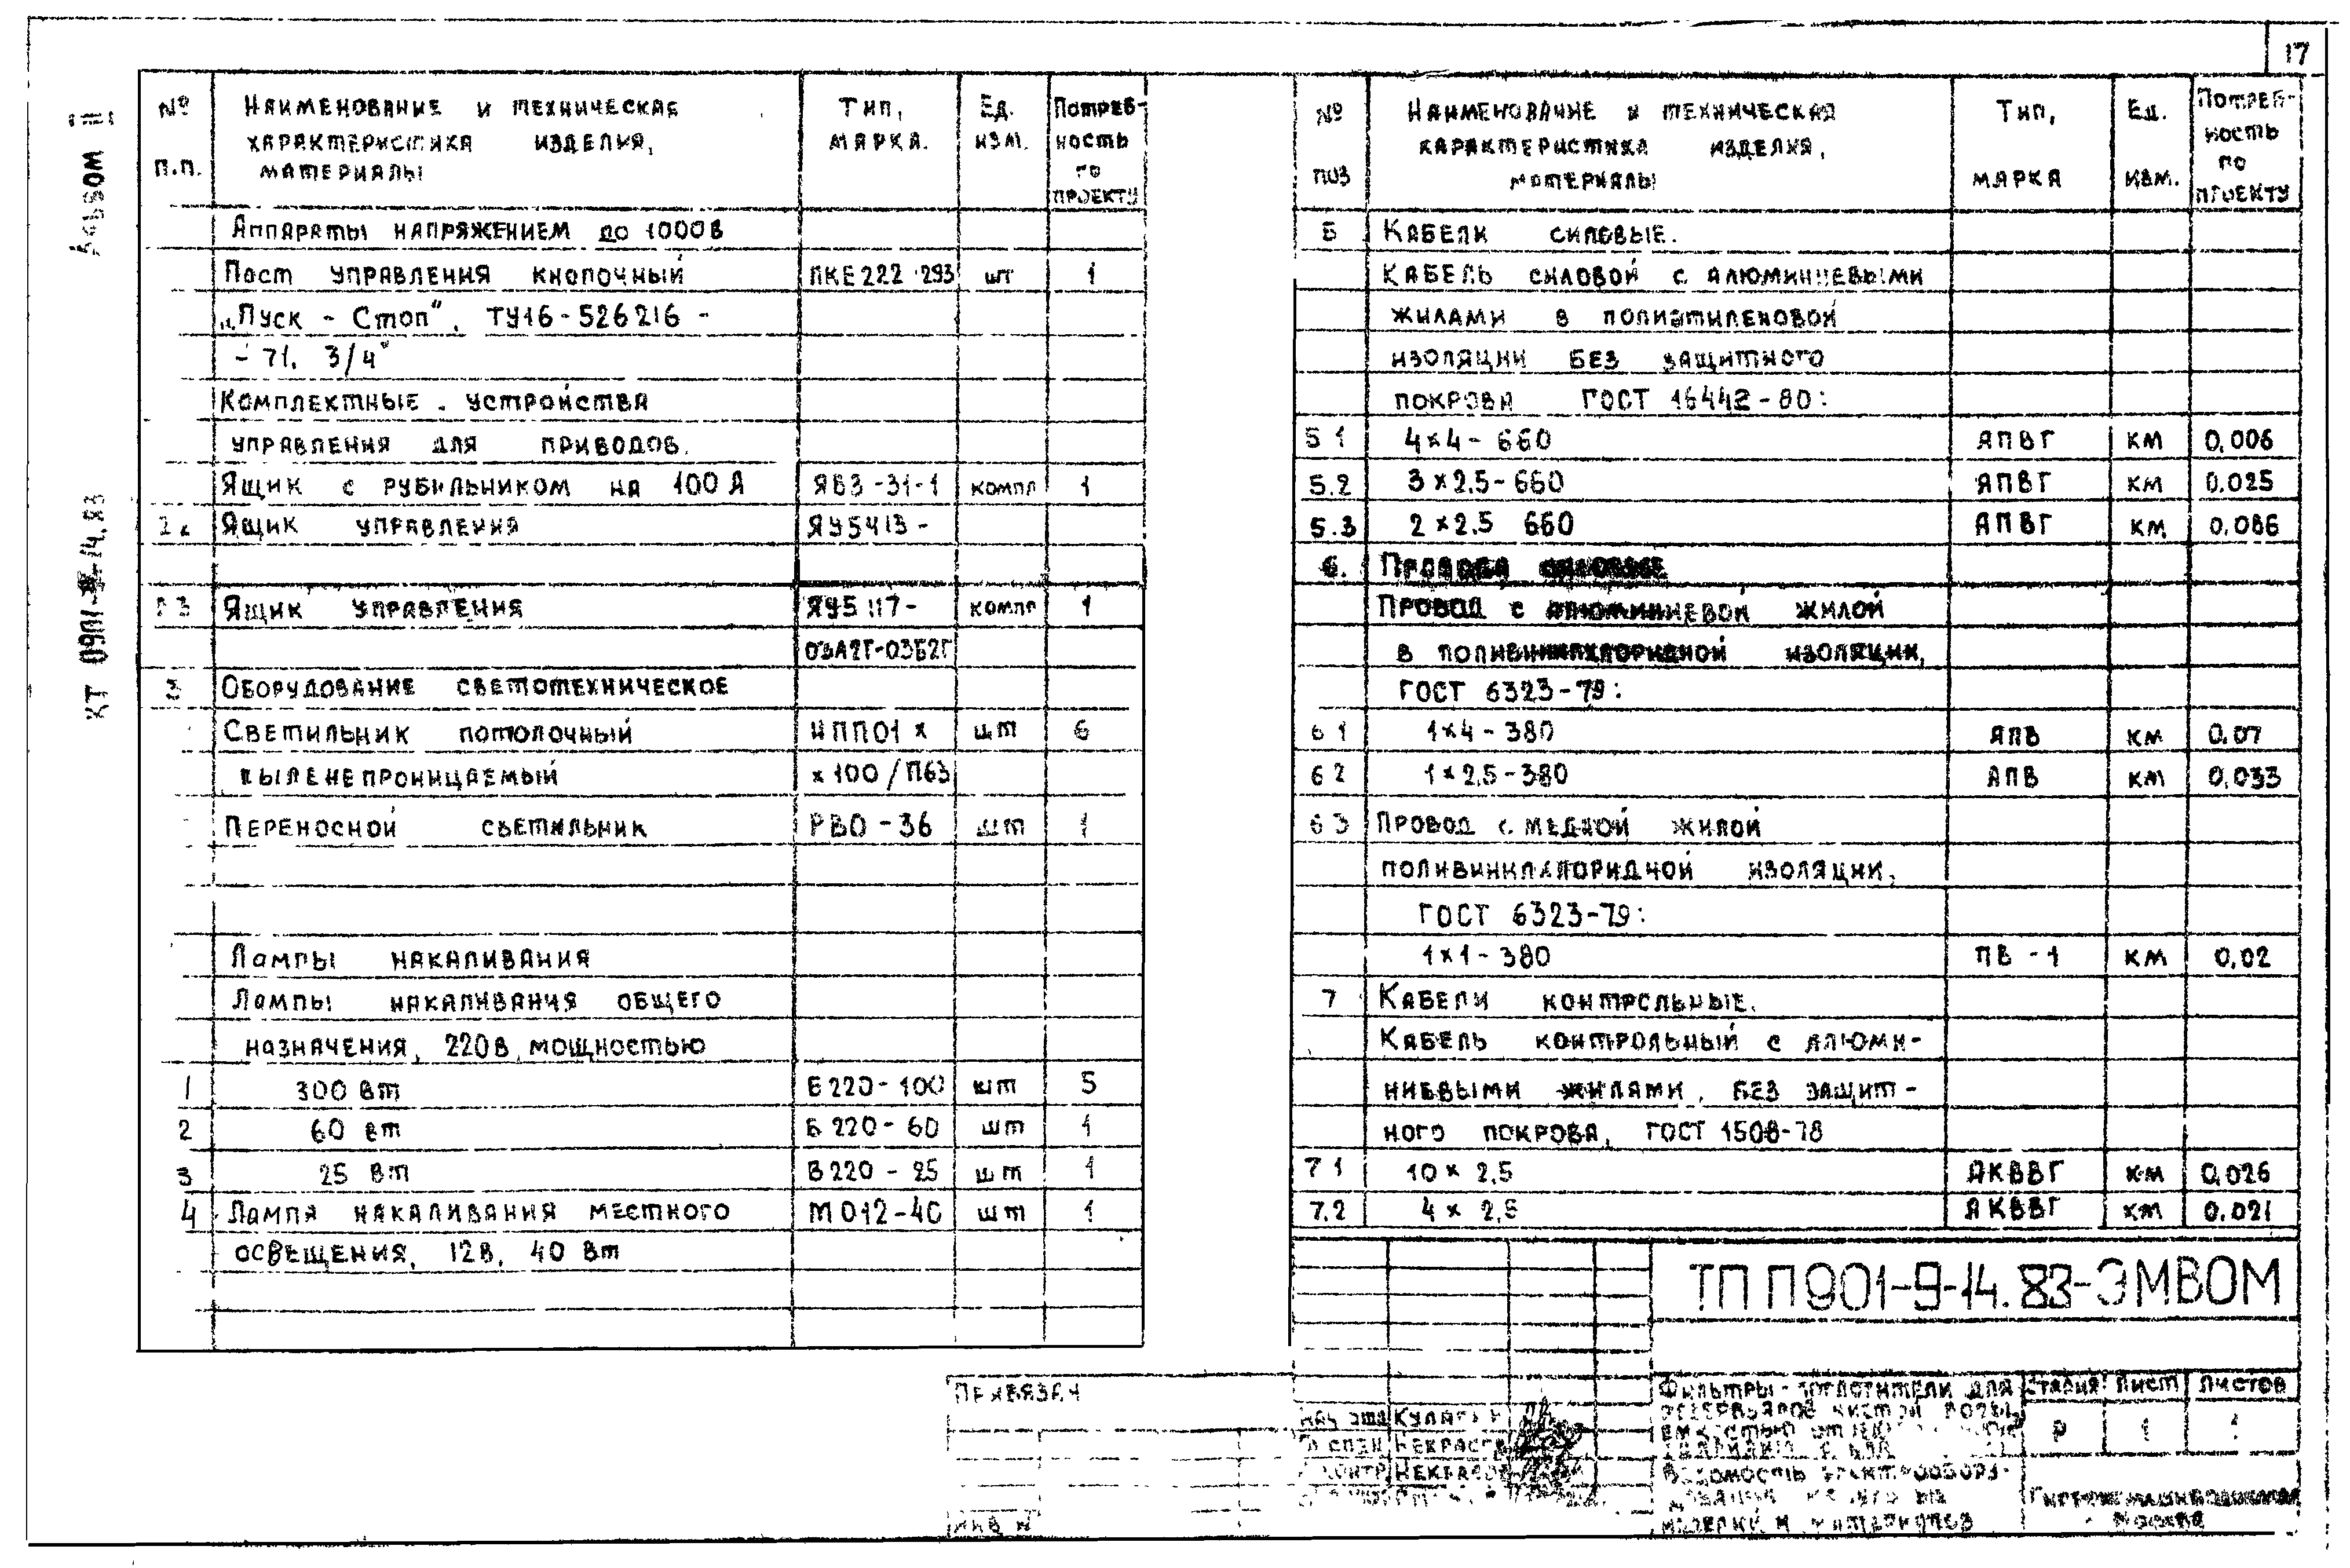 17
Альбом III
КТ 0901-9-14.83
№ п.п.
Наименование и техническая характеристика изделия, материалы
Тип, марка.
Ед. изм.
Потреб-ность по проекту
Аппараты напряжением до 1000В
Пост управления кнопочный ПКЕ222-293 шт 1
„Пуск - Стоп", ТУ16-526216-
-71, 3/4"
Комплектные устройства
управления для приводов.
Ящик с рубильником на 100 А ЯВЗ-31-1 компл 1
Ящик управления ЯУ5413-
Ящик управления ЯУ5117- компл 1
03А2Г-03Б2Г
3 Оборудование светотехническое
Светильник потолочный НПП01 х шт 6
пыленепроницаемый х100/П63
Переносной светильник РВО-36 шт 1
Лампы накаливания
Лампы накаливания общего
назначения, 220В, мощностью
1 300 Вт Б220-100 шт 5
2 60 Вт Б220-60 шт 1
3 25 Вт В220-25 шт 1
4 Лампа накаливания местного МО12-40 шт 1
освещения, 12В, 40 Вт
№ поз
Наименование и техническая характеристика изделия, материалы
Тип, марка
Ед. изм.
Потреб-ность по проекту
5 Кабели силовые.
Кабель силовой с алюминиевыми
жилами в полиэтиленовой
изоляции без защитного
покрова ГОСТ 16442-80:
5.1 4х4-660 АПВГ км 0,006
5.2 3х2,5-660 АПВГ км 0.025
5.3 2х2.5 660 АПВГ км 0,086
6. Провода силовые
Провод с алюминиевой жилой
в поливинилхлоридной изоляции,
ГОСТ 6323-79:
6.1 1х4-380 АПВ км 0,07
6.2 1х2,5-380 АПВ км 0,033
6.3 Провод с медной жилой
поливинилхлоридной изоляции,
ГОСТ 6323-79:
1х1-380 ПВ-1 км 0,02
7 Кабели контрольные.
Кабель контрольный с алюми-
ниевыми жилами, без защит-
ного покрова, ГОСТ 1508-78
7.1 10х2,5 АКВВГ км 0,026
7.2 4х2,5 АКВВГ км 0.021
ТП П901-9-14.83-ЭМВОМ
Привязан
Инв №
Фильтры-поглотители для
резервуаров чистой воды,
Ведомость электрообору-
дования
изделий и материалов
Стадия Лист Листов
Р 1 1
Москва
Некрасов
Некрасов